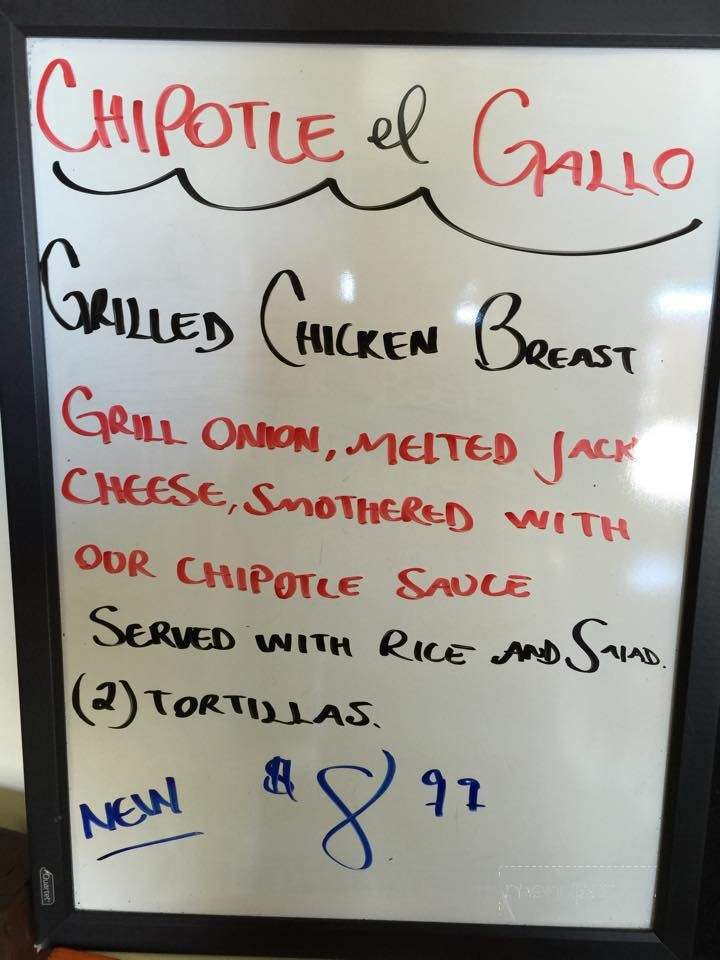 CHIPOTLE el GALLO
GRILLED CHICKEN BREAST
GRILL ONION, MELTED JACK
CHEESE, SMOTHERED WITH
OUR CHIPOTLE SAUCE
SERVED WITH RICE AND SALAD.
(2) TORTILLAS.
NEW $8 99
Quartet